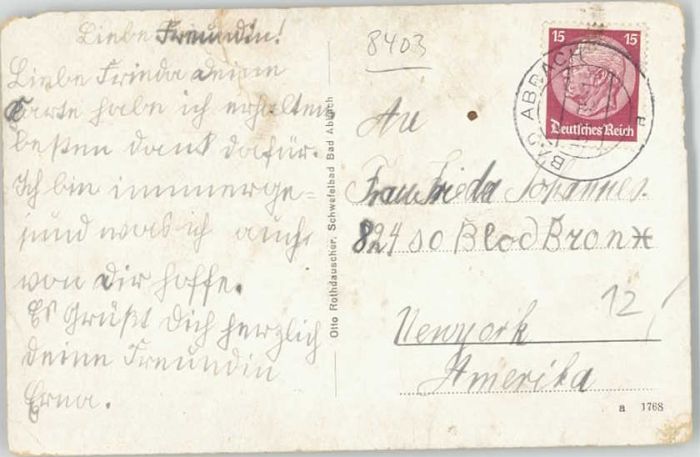 Liebe Freundin!
Liebe Frieda deine
Karte habe ich erhalten
besten dank dafür.
Ich bin immer ge=
sund was ich auch
von Dir hoffe.
Es Grüßt Dich herzlich
deine Freundin
Erna.
Otto Rothdauscher, Schwefelbad Bad Abbach
8403
An
Frau Frieda Johannes.
824 So Blod Bronx
12
Newyork
Amerika
15 15
Deutsches Reich
BAD ABBACH
a 1768